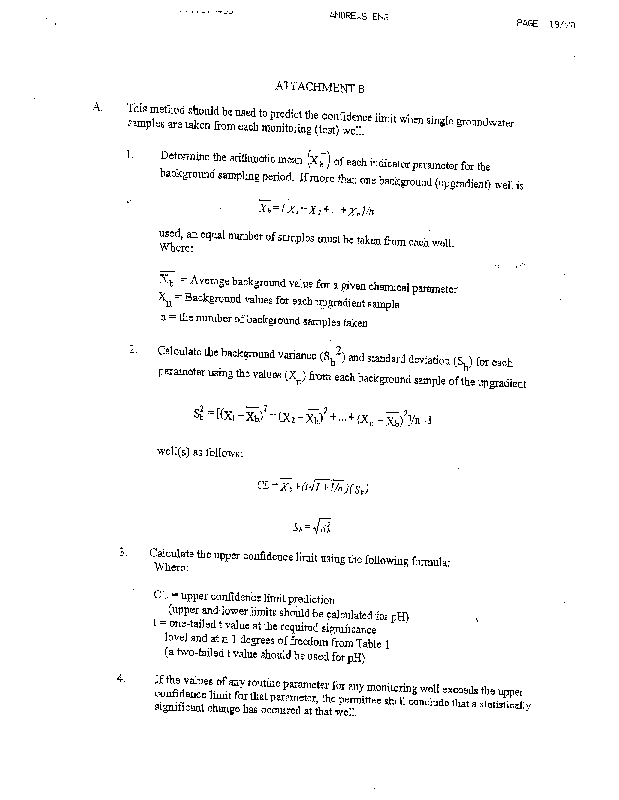 ANDREWS ENG
PAGE 19/20
ATTACHMENT B
A. This method should be used to predict the confidence limit when single groundwater
samples are taken from each monitoring (test) well.
1. Determine the arithmetic mean (X̅b) of each indicator parameter for the
background sampling period. If more than one background (upgradient) well is
X̅b = (X₁ + X₂ + ... + Xn)/n
used, an equal number of samples must be taken from each well.
Where:
X̅b = Average background value for a given chemical parameter
Xn = Background values for each upgradient sample
n = the number of background samples taken
2. Calculate the background variance (Sb²) and standard deviation (Sb) for each
parameter using the values (Xn) from each background sample of the upgradient
Sb² = [(X₁ - X̅b)² + (X₂ - X̅b)² + ... + (Xn - X̅b)²]/n -1
well(s) as follows:
CL = X̅b + (t√1 + 1/n)(Sb)
Sb = √Sb²
3. Calculate the upper confidence limit using the following formula:
Where:
CL = upper confidence limit prediction
(upper and lower limits should be calculated for pH)
t = one-tailed t value at the required significance
level and at n-1 degrees of freedom from Table 1
(a two-tailed t value should be used for pH)
4. If the values of any routine parameter for any monitoring well exceeds the upper
confidence limit for that parameter, the permittee shall conclude that a statistically
significant change has occured at that well.